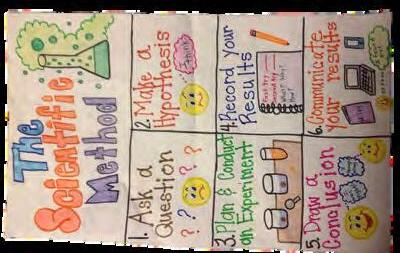 The
Scientific
Method
1. Ask a
Question
? ? ? ? ?
2. Make a
Hypothesis
I think
3. Plan & Conduct
an Experiment
4. Record your
Results
5. Draw a
Conclusion
6. Communicate
your results